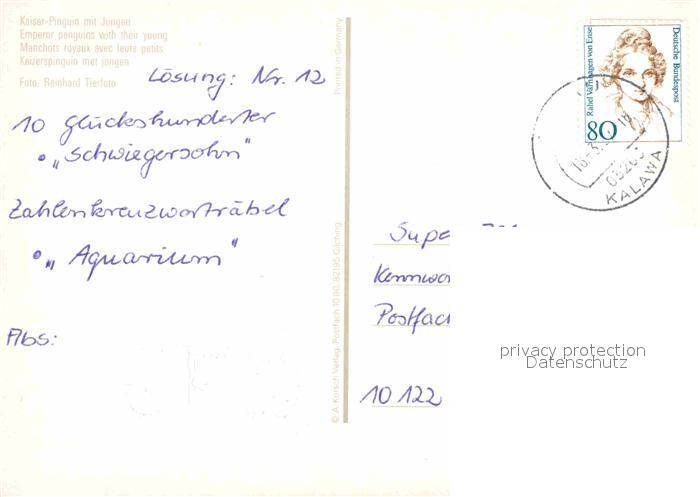 Kaiser-Pinguin mit Jungen
Emperor penguins with their young
Manchots royaux avec leurs petits
Keizerspinguin met jongen
Foto: Reinhard Tierfoto
Lösung: Nr. 12
10 Glückshunderter
• „Schwiegersohn"
Zahlenkreuzworträbsel
• „Aquarium"
Abs:
Printed in Germany
© A. Korsch Verlag, Postfach 10 80, 82195 Gilching
Rahel Varnhagen von Ense
Deutsche Bundespost
80
KALAWA
Supe
Kennwo
Postfac
10 122
privacy protection
Datenschutz